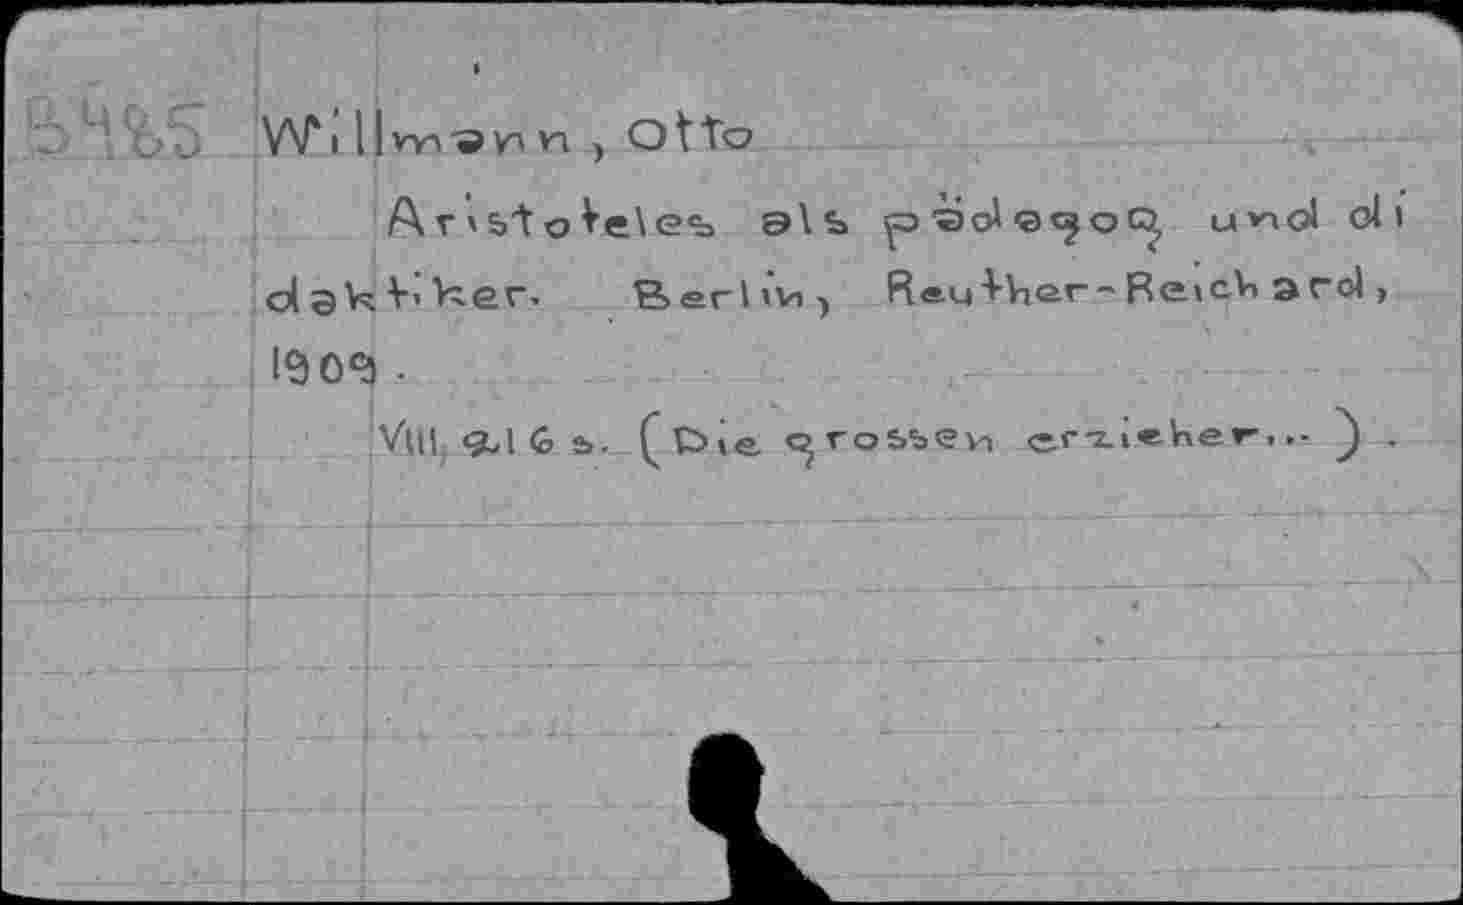 B485 Willmann, Otto
Aristoteles als pädagog und di
daktiker. Berlin, Reuther-Reichard,
1909.
VIII, 216 s. (Die grossen erzieher...).